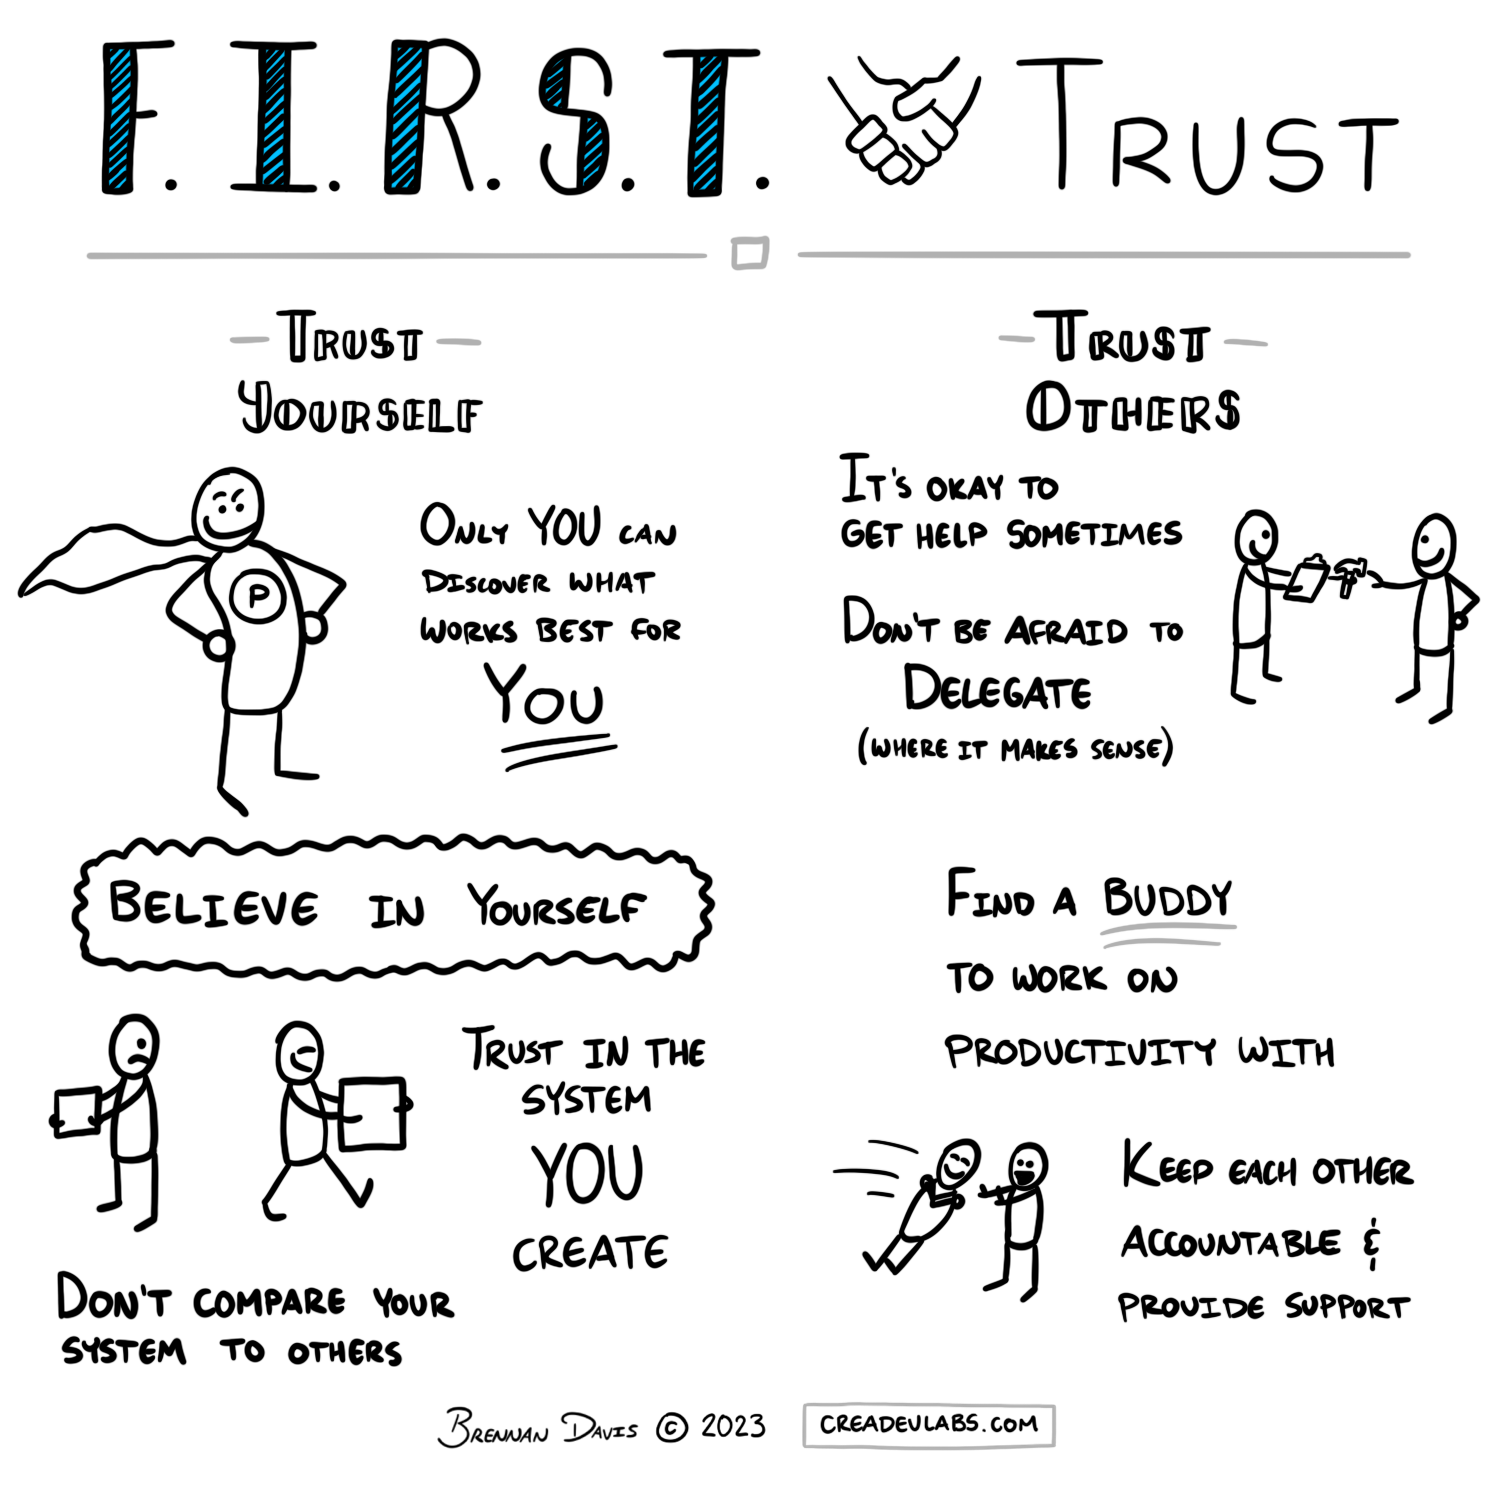 F.I.R.S.T. TRUST
TRUST
YOURSELF
P
ONLY YOU CAN
DISCOVER WHAT
WORKS BEST FOR
YOU
BELIEVE IN YOURSELF
TRUST IN THE
SYSTEM
YOU
CREATE
DON'T COMPARE YOUR
SYSTEM TO OTHERS
TRUST
OTHERS
IT'S OKAY TO
GET HELP SOMETIMES
DON'T BE AFRAID TO
DELEGATE
(WHERE IT MAKES SENSE)
FIND A BUDDY
TO WORK ON
PRODUCTIVITY WITH
KEEP EACH OTHER
ACCOUNTABLE &
PROVIDE SUPPORT
BRENNAN DAVIS © 2023 CREADEVLABS.COM